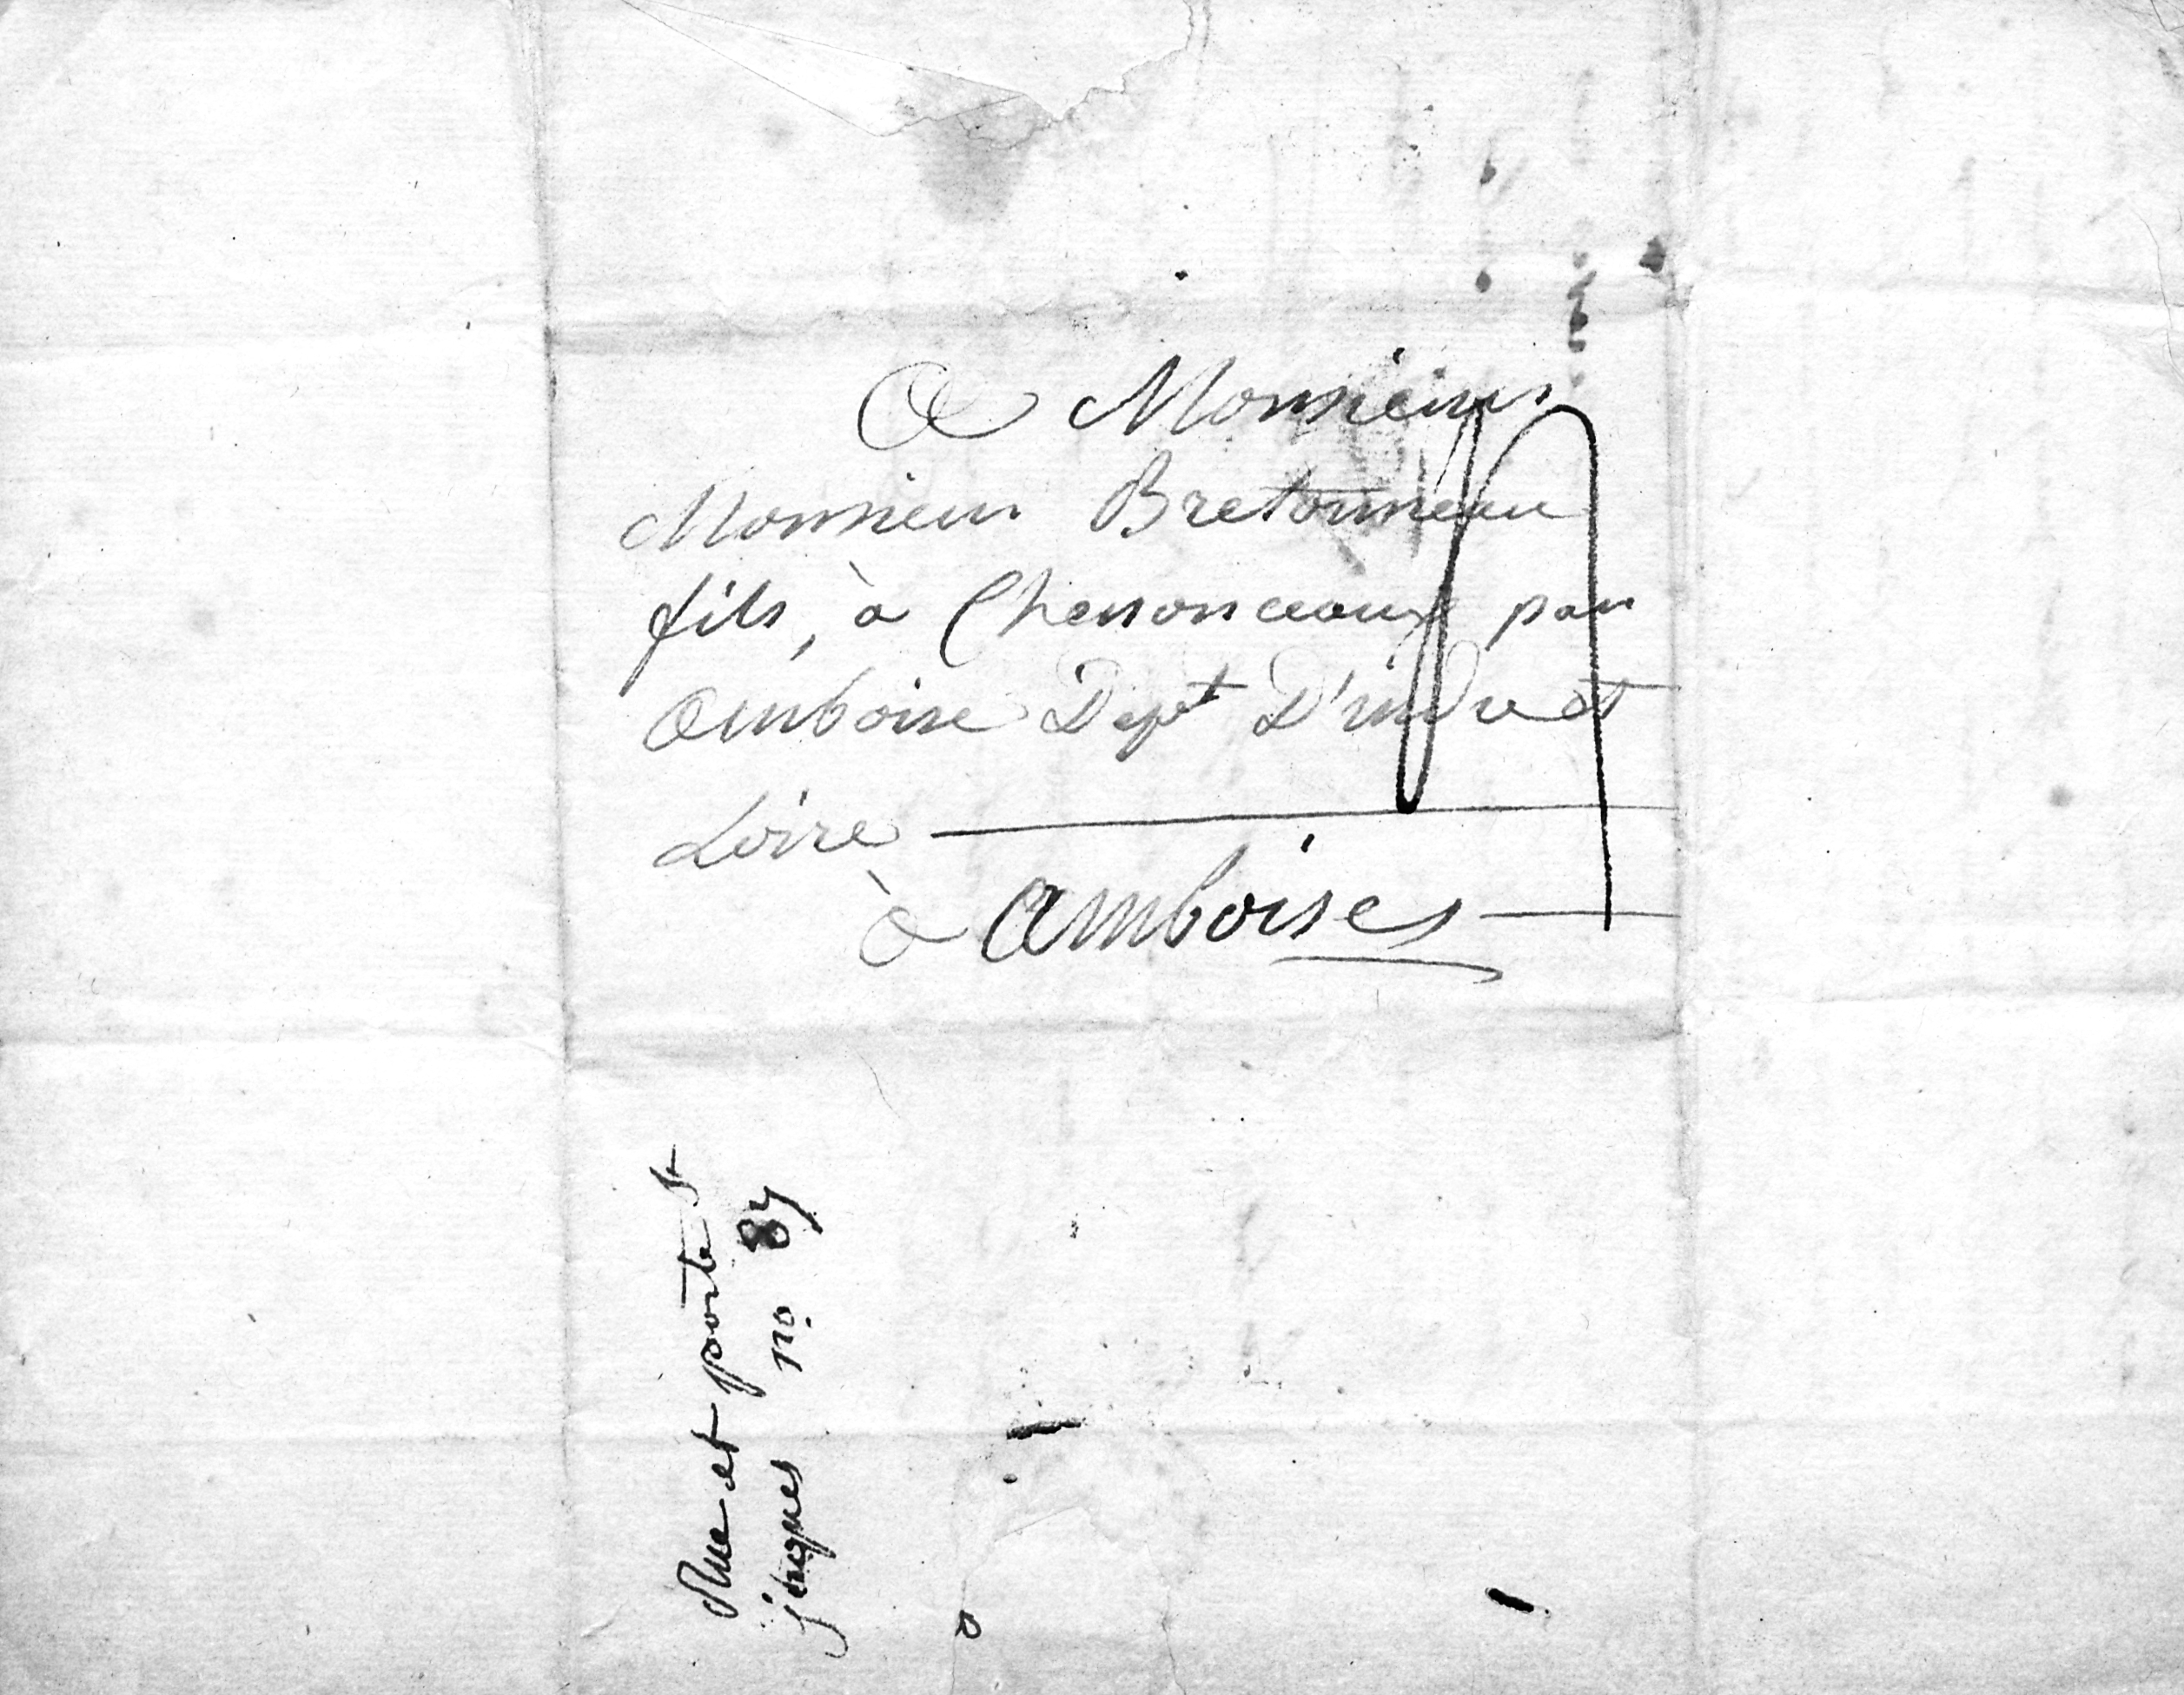 A Monsieur
Monsieur Bretonneau
fils, à Chenonceaux par
Amboise Dept D'indre et
Loire
à Amboises
Rue et porte St
jaques no. 87